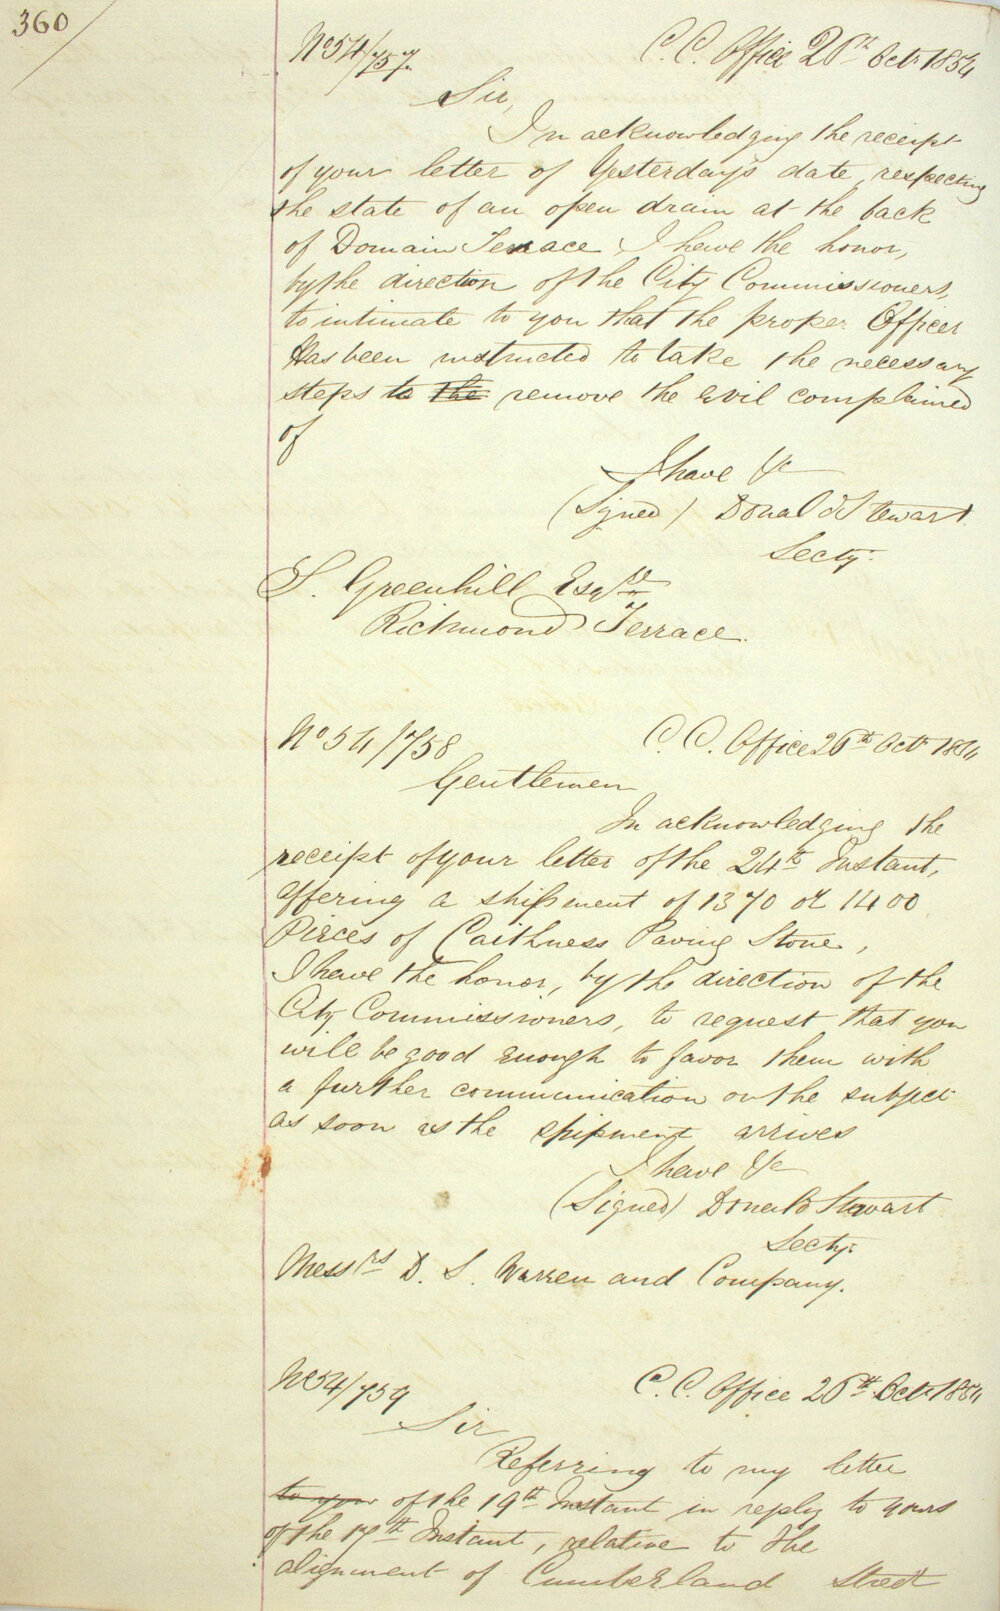 360
No 54/757. C. C. Office 26th Octr 1854
Sir,
In acknowledging the receipt
of your letter of Yesterday's date, respecting
the state of an open drain at the back
of Domain Terrace, I have the honor,
by the direction of the City Commissioners,
to intimate to you that the proper Officer
has been instructed to take the necessary
steps to the remove the Evil complained
of
I have &c
(Signed) Donald Stewart
Secty.
S. Greenhill Esqre
Richmond Terrace.
No 54/758 C. C. Office 26th Octr 1854
Gentlemen
In acknowledging the
receipt of your letter of the 24th Instant,
offering a shipment of 1370 or 1400
Pieces of Caithness Paving Stone,
I have the honor, by the direction of the
City Commissioners, to request that you
will be good enough to favor them with
a further communication on the subject
as soon as the shipment arrives
I have &c
(Signed) Donald Stewart
Secty.
Messrs D. S. Warren and Company.
No 54/759 C. C. Office 26th Octr 1854
Sir
Referring to my letter
to your of the 19th Instant in reply to yours
of the 17th Instant, relative to the
alignment of Cumberland Street